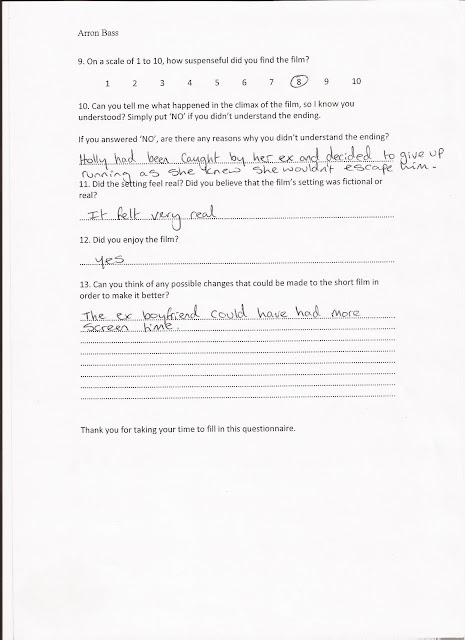 Arron Bass
9. On a scale of 1 to 10, how suspenseful did you find the film?
1 2 3 4 5 6 7 8 9 10
10. Can you tell me what happened in the climax of the film, so I know you
understood? Simply put ‘NO’ if you didn’t understand the ending.
If you answered ‘NO’, are there any reasons why you didn’t understand the ending?
Holly had been caught by her ex and decided to give up
running as she knew she wouldn't escape him.
11. Did the setting feel real? Did you believe that the film’s setting was fictional or
real?
It felt very real
12. Did you enjoy the film?
yes
13. Can you think of any possible changes that could be made to the short film in
order to make it better?
The ex boyfriend could have had more
screen time.
Thank you for taking your time to fill in this questionnaire.